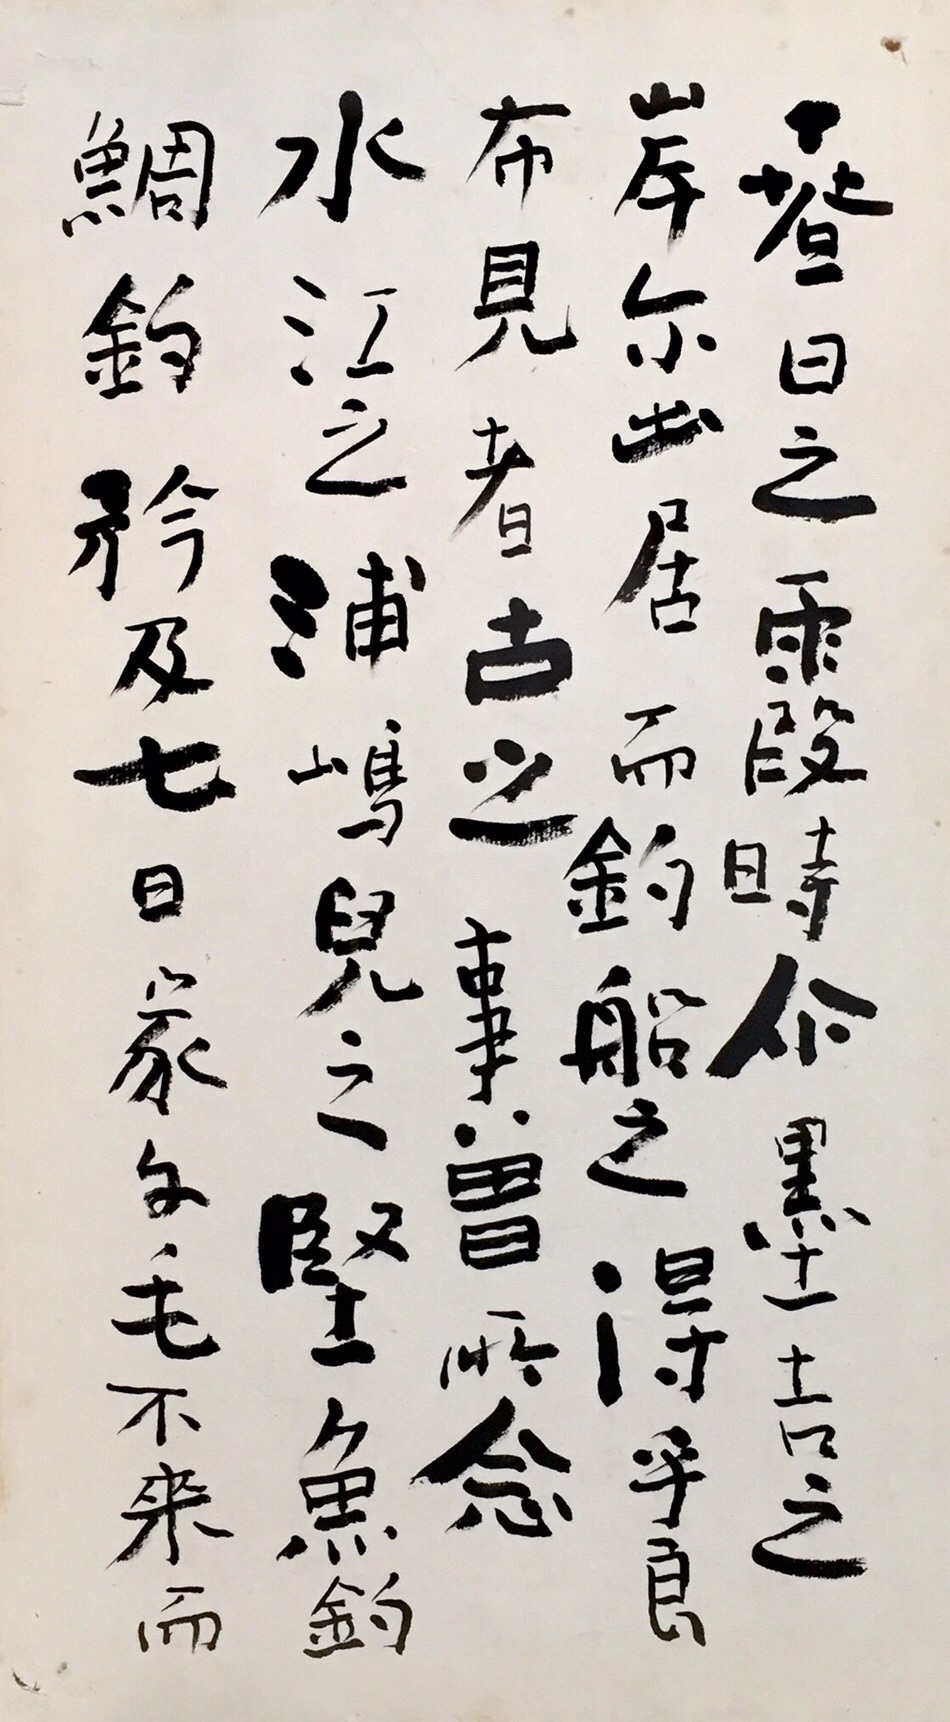 春日之霞時尓墨吉之
岸尓出居而釣船之得乎良
布見者古之事曾所念
水江之浦嶋兒之堅魚釣
鯛釣矜及七日家尓毛不来而